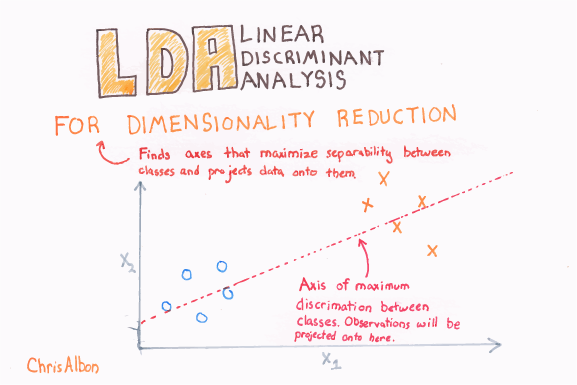 LDA LINEAR
DISCRIMINANT
ANALYSIS
FOR DIMENSIONALITY REDUCTION
Finds axes that maximize separability between
classes and projects data onto them.
X2
Axis of maximum
discrimation between
classes. Observations will be
projected onto here.
X1
Chris Albon